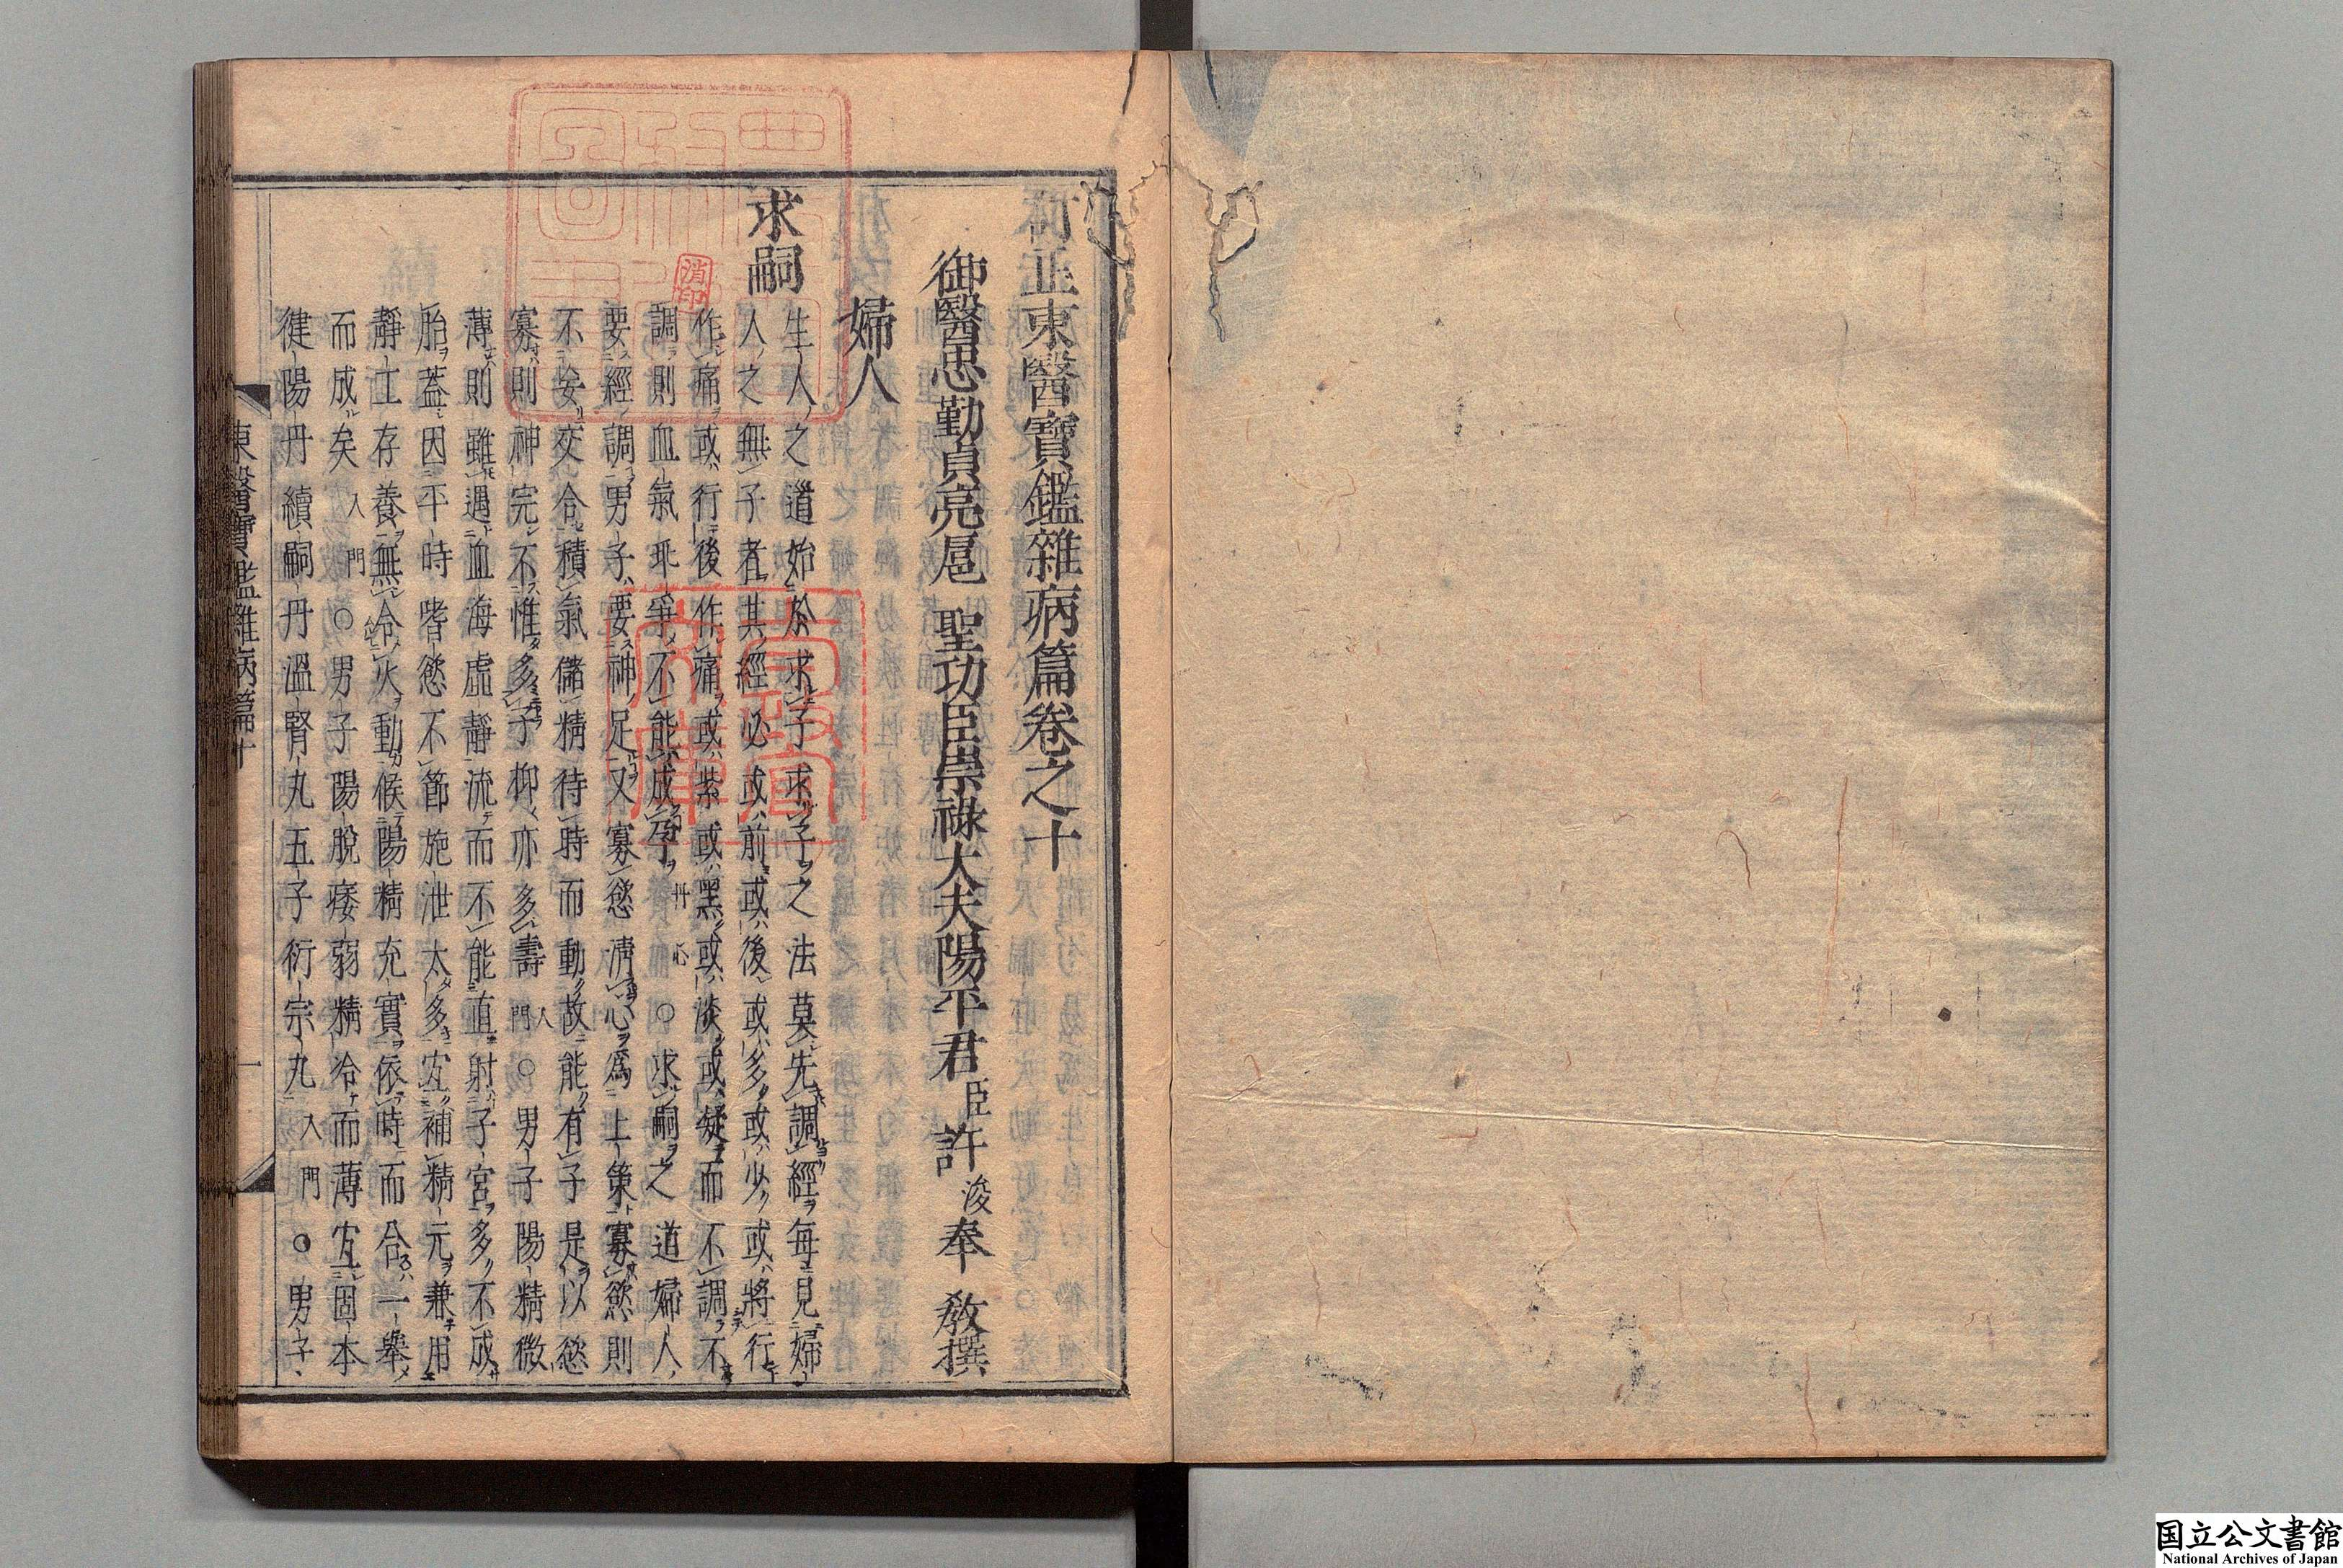 訂正東醫寶鑑雜病篇卷之十
御醫忠勤貞亮扈 聖功臣崇祿大夫陽平君 臣 許 浚 奉 敎撰
婦人
求嗣
生人之道始於求子求子之法莫先調經每見婦
人之無子者其經必或前或後或多或少或將行
作痛或行後作痛或紫或黑或淡或凝而不調不
調則血氣乖爭不能成孕 丹心 ○求嗣之道婦人
要經調男子要神足又寡慾淸心爲上策寡慾則
不妄交合積氣儲精待時而動故能有子是以慾
寡則神完不惟多子抑亦多壽 入門 ○男子陽精微
薄則雖遇血海虛靜流而不能直射子宮多不成
胎蓋因平時嗜慾不節施泄太多宜補精元兼用
靜工存養無令火動候陽精充實依時而合一擧
而成矣 入門 ○男子陽脫痿弱精冷而薄宜固本
健陽丹續嗣丹溫腎丸五子衍宗丸 入門 ○男子
東醫寶鑑雜病篇十 一
消印
国立公文書館
National Archives of Japan